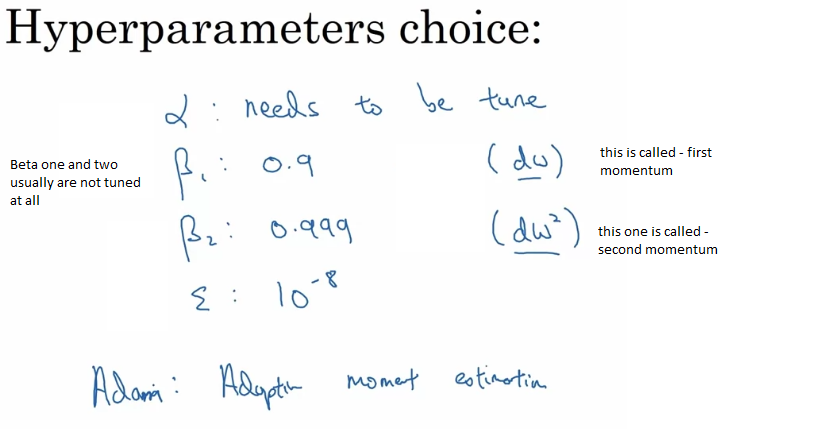 Hyperparameters choice:
α : needs to be tune
Beta one and two
usually are not tuned
at all
β₁ : 0.9 (dw)
this is called - first
momentum
β₂ : 0.999 (dw²)
this one is called -
second momentum
ε : 10⁻⁸
Adam : Adaptin moment estimation